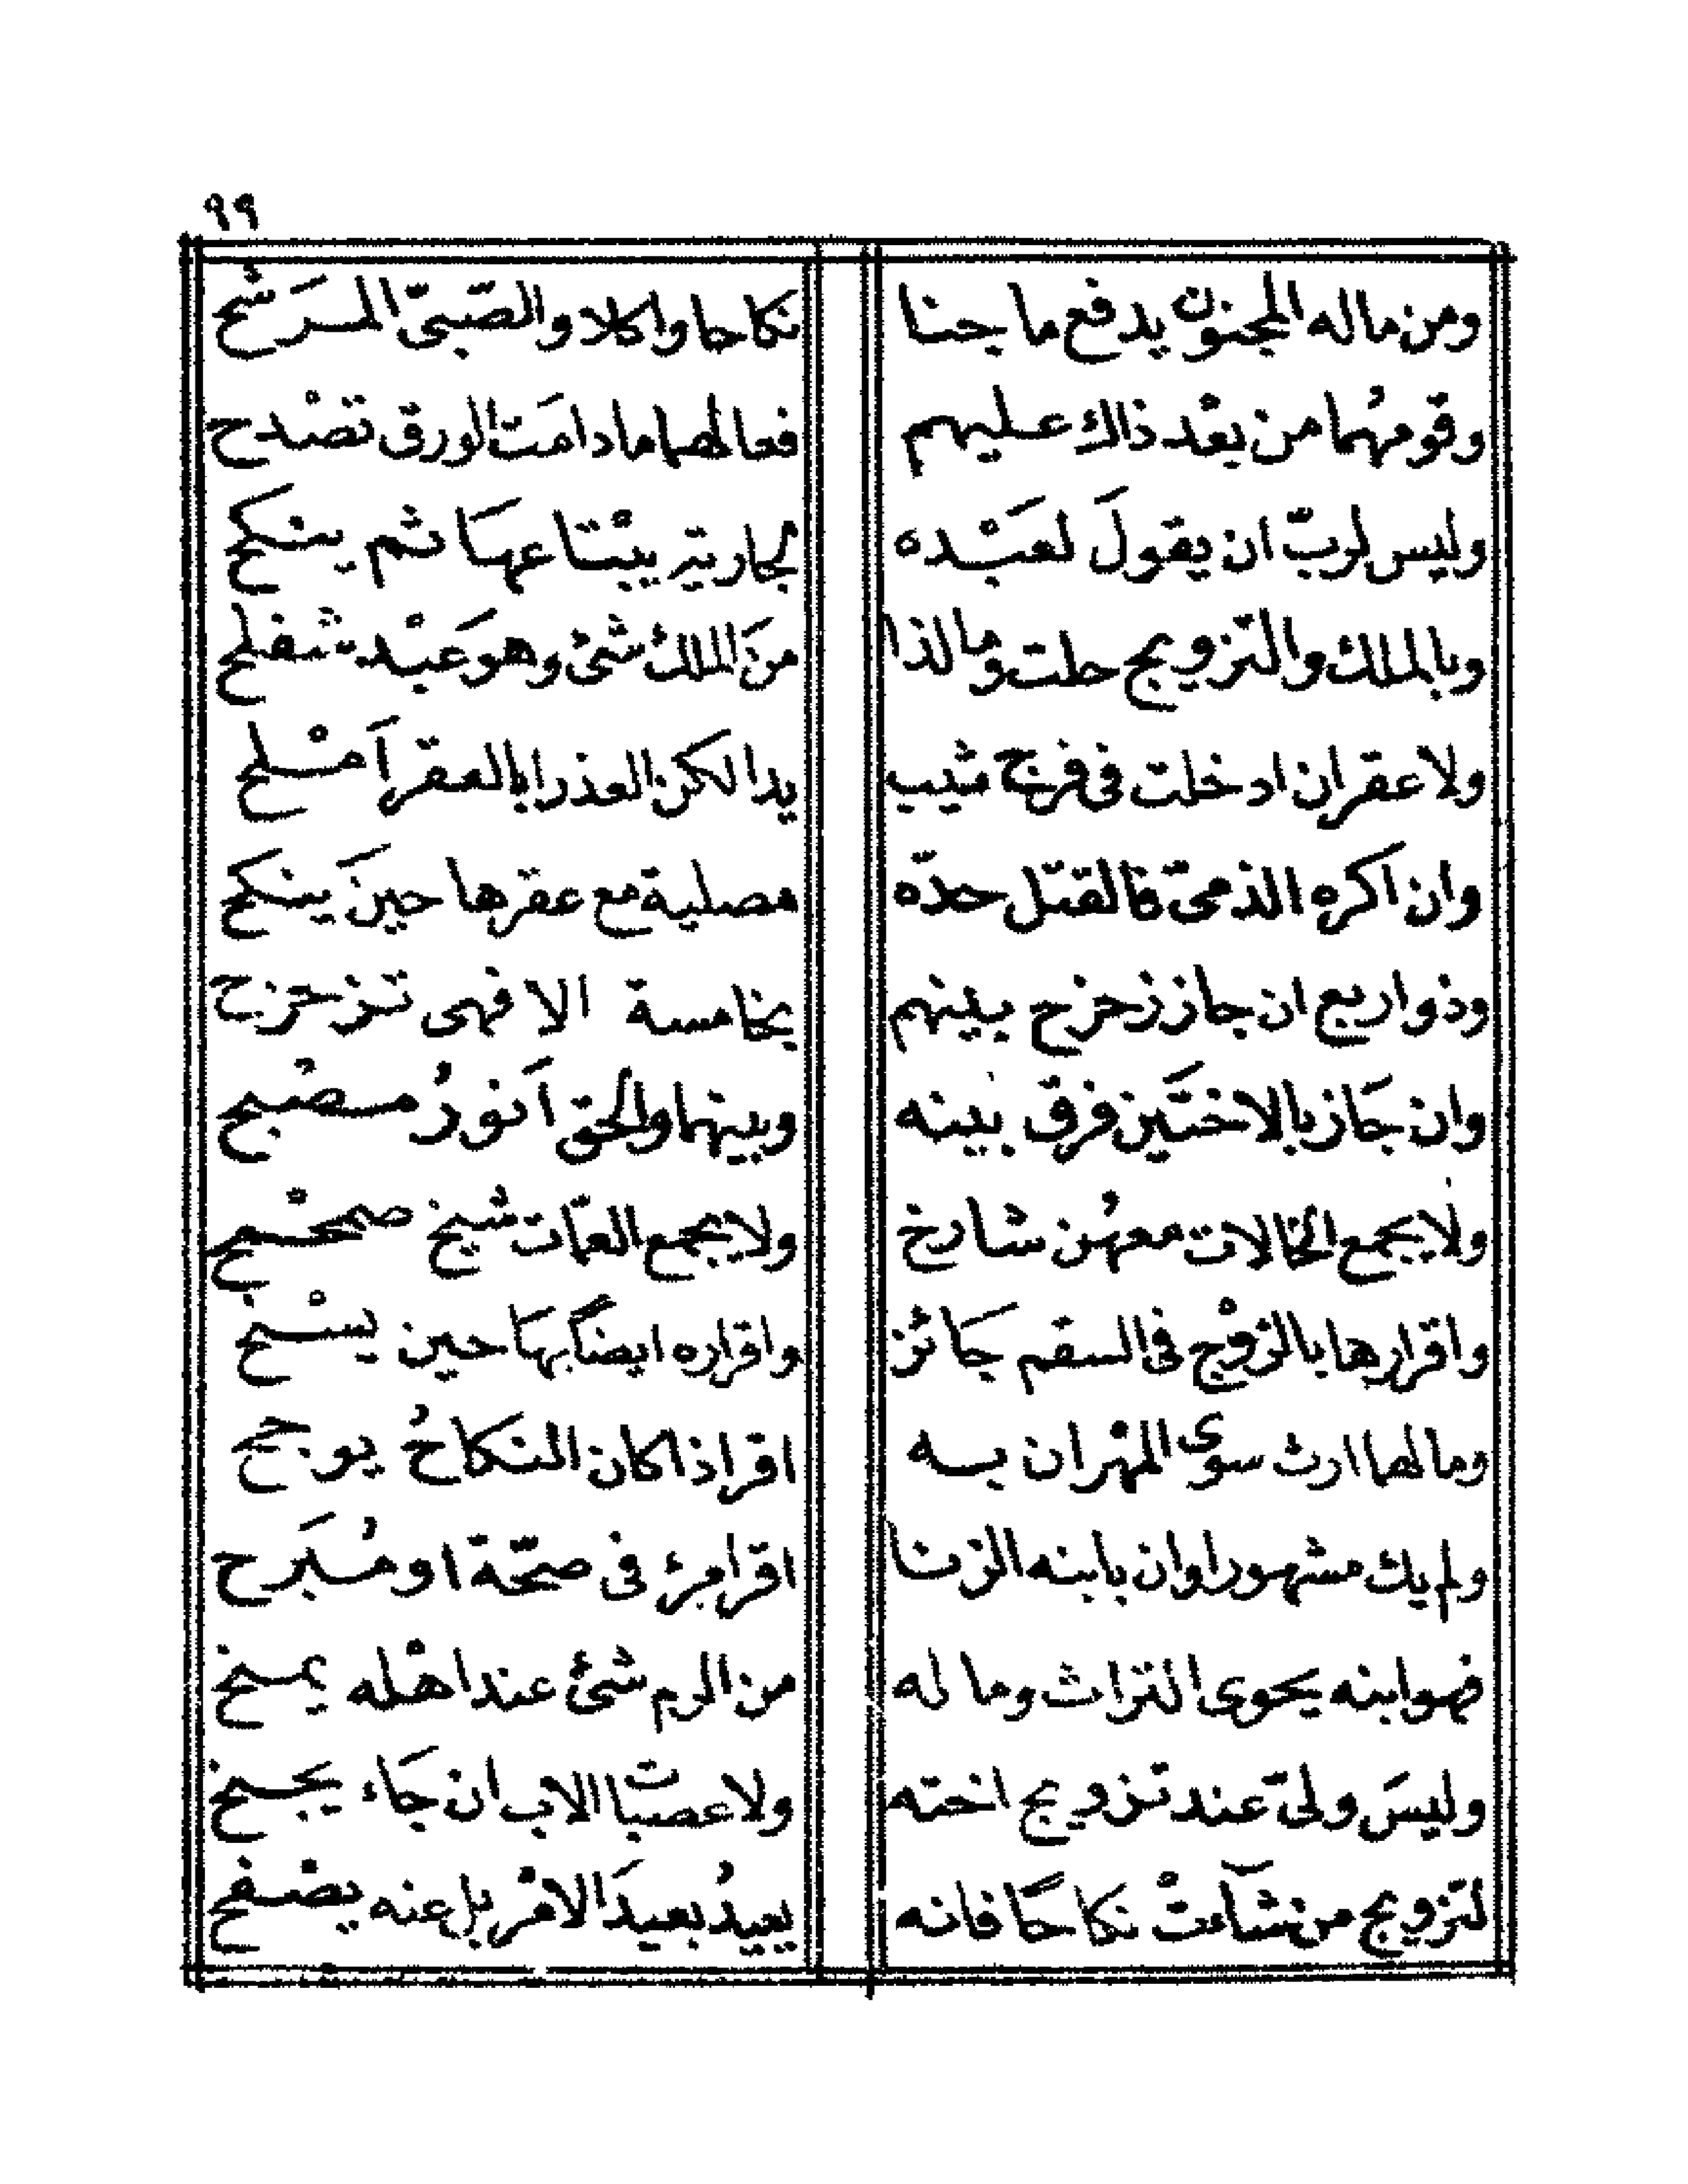 ٩٩
ومن ماله المجنون يدفع ما جنا نكاحا واكلا والصّبىّ المرَشّح
وقومهُما من بعْد ذاك عليهم فعالهما مادامَت الورق تصْدح
وليس لربّ ان يقولَ لعَبْده لجارية يبْتاعهَا ثم ينكح
وبالملك والتزويج حلت وما لذا منَ الملك شئ وهوَ عبْد شفلح
ولا عقر ان ادخلت فى فرج ثيب يدا لكن العذرا بالعقر اَمْلح
وان اكره الذمىّ فالقتل حدّه مصلية مع عقرها حينَ ينكح
وذو اربع ان جاز زحزح بينهم بخامسة الا فهى تزحزح
وان جَاز بالاختَين فرق بينه وبينهما والحق اَنورُ مصْبح
ولا يجمع الخالات معهُن شارخ ولا يجمع العمّات شيخ صمحْمح
واقرارها بالزوْج فى السقم جَائز واقراره ايضاً بهَا حين يسْنح
وما لهما ارث سوى المهْر ان به اقر اذا كان النكاحُ يوجح
ولم يك مشهورا وان بابنه الزنا اقر امرئ فى صحّة او مُبَرح
فهو ابنه يحوى التراث وما له من الرم شئ عند اهْله يمنح
وليسَ ولىّ عند تزويج اخته ولا عصبات الاب ان جَاء يجنح
لتزويج من شآءتْ نكاحًا فانه يعيدُ بعيدَ الامْر بل عنه يصْفح